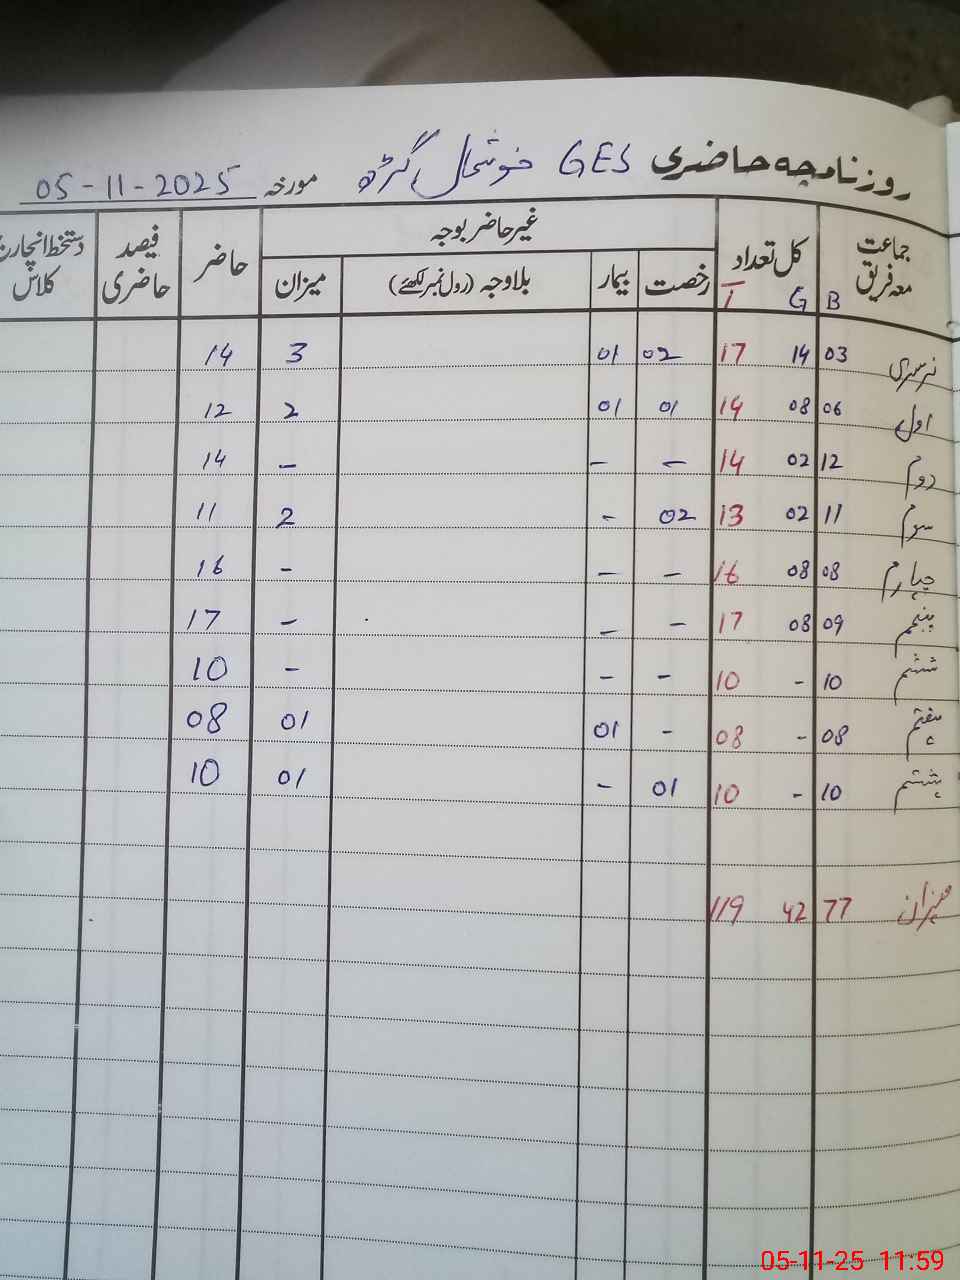 روزنامچہ حاضری GES خوشحال گڑھ مورخہ 05-11-2025
جماعت معہ فریق B G کل تعداد T غیر حاضر بوجہ حاضر فیصد حاضری دستخط انچارج کلاس
رخصت بیمار بلاوجہ (رول نمبر لکھئے) میزان
نرسری 03 14 17 02 01 3 14
اول 06 08 14 01 01 2 12
دوم 12 02 14 - - - 14
سوم 11 02 13 02 - 2 11
چہارم 08 08 16 - - - 16
پنجم 09 08 17 - - - 17
ششم 10 - 10 - - - 10
ہفتم 08 - 08 - 01 01 08
ہشتم 10 - 10 01 - 01 10
میزان 77 42 119
05-11-25 11:59